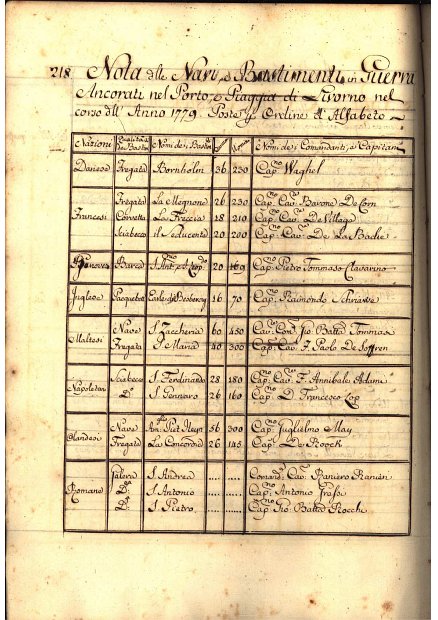 218 Nota delle Navi, e Bastimenti in Guerra
Ancorati nel Porto, e Piaggia di Livorno nel
corso dell' Anno 1779. Poste p Ordine d' Alfabeto
Nazioni Nomi de Nomi de Comandanti, o Capitani
Danese Fregata Bornholm 36 230 Capno Waghel
Fregata La Megnone 26 230 Capno Cavre Barone De Corn
Francesi Corvetta La Freccia 18 210 Capno Cavre De Village
Sciabecco il Seducente 20 200 Capno Cavre De La Bache
Genovese Barca S. Anto 20 169 Capno Pietro Tommaso Clavarino
Inglese Pacquebot 16 70 Capno Raimondo
Maltesi Nave S. Zaccheria 60 450 Cavre Gio Batta Tommasi
Fregata S. Maria 40 300 Capno Cavre F. Paolo De Soffren
Napoletani Sciabecco S. Ferdinando 28 180 Capno Cavre F. Annibale Adami
Do S. Gennaro 26 160 Capno D. Francesco Lop
Olandese Nave 56 300 Capno Guglielmo May
Fregata La Concordia 26 145 Capno De Roock
Galera S. Andrea ..... ..... Comandte Cavre Raniero
Romane Da S. Antonio ..... ..... Capno Antonio
Da S. Pietro ..... ..... Capno Gio: Batta Rocchi